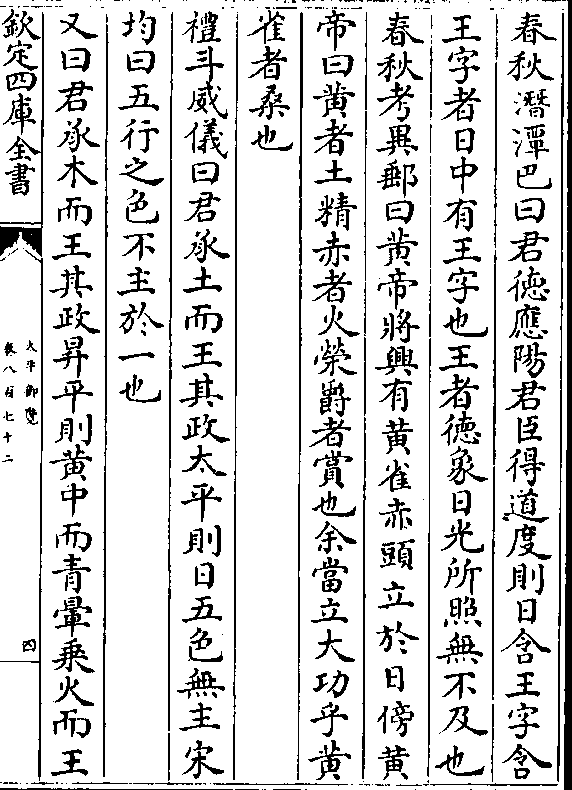 春秋潛潭巴曰君德應陽君臣得道度則日含王字含
王字者日中有王字也王者德象日光所照無不及也
春秋考異郵曰黄帝將興有黄雀赤頭立於日傍黄
帝曰黄者土精赤者火榮爵者賞也余當立大功乎黄
雀者桑也
禮斗威儀曰君承土而王其政太平則日五色無主宋
均曰五行之色不主於一也
又曰君承木而王其政昇平則黄中而青暈乘火而王
欽定四庫全書
太平御覽
卷八百七十二
四